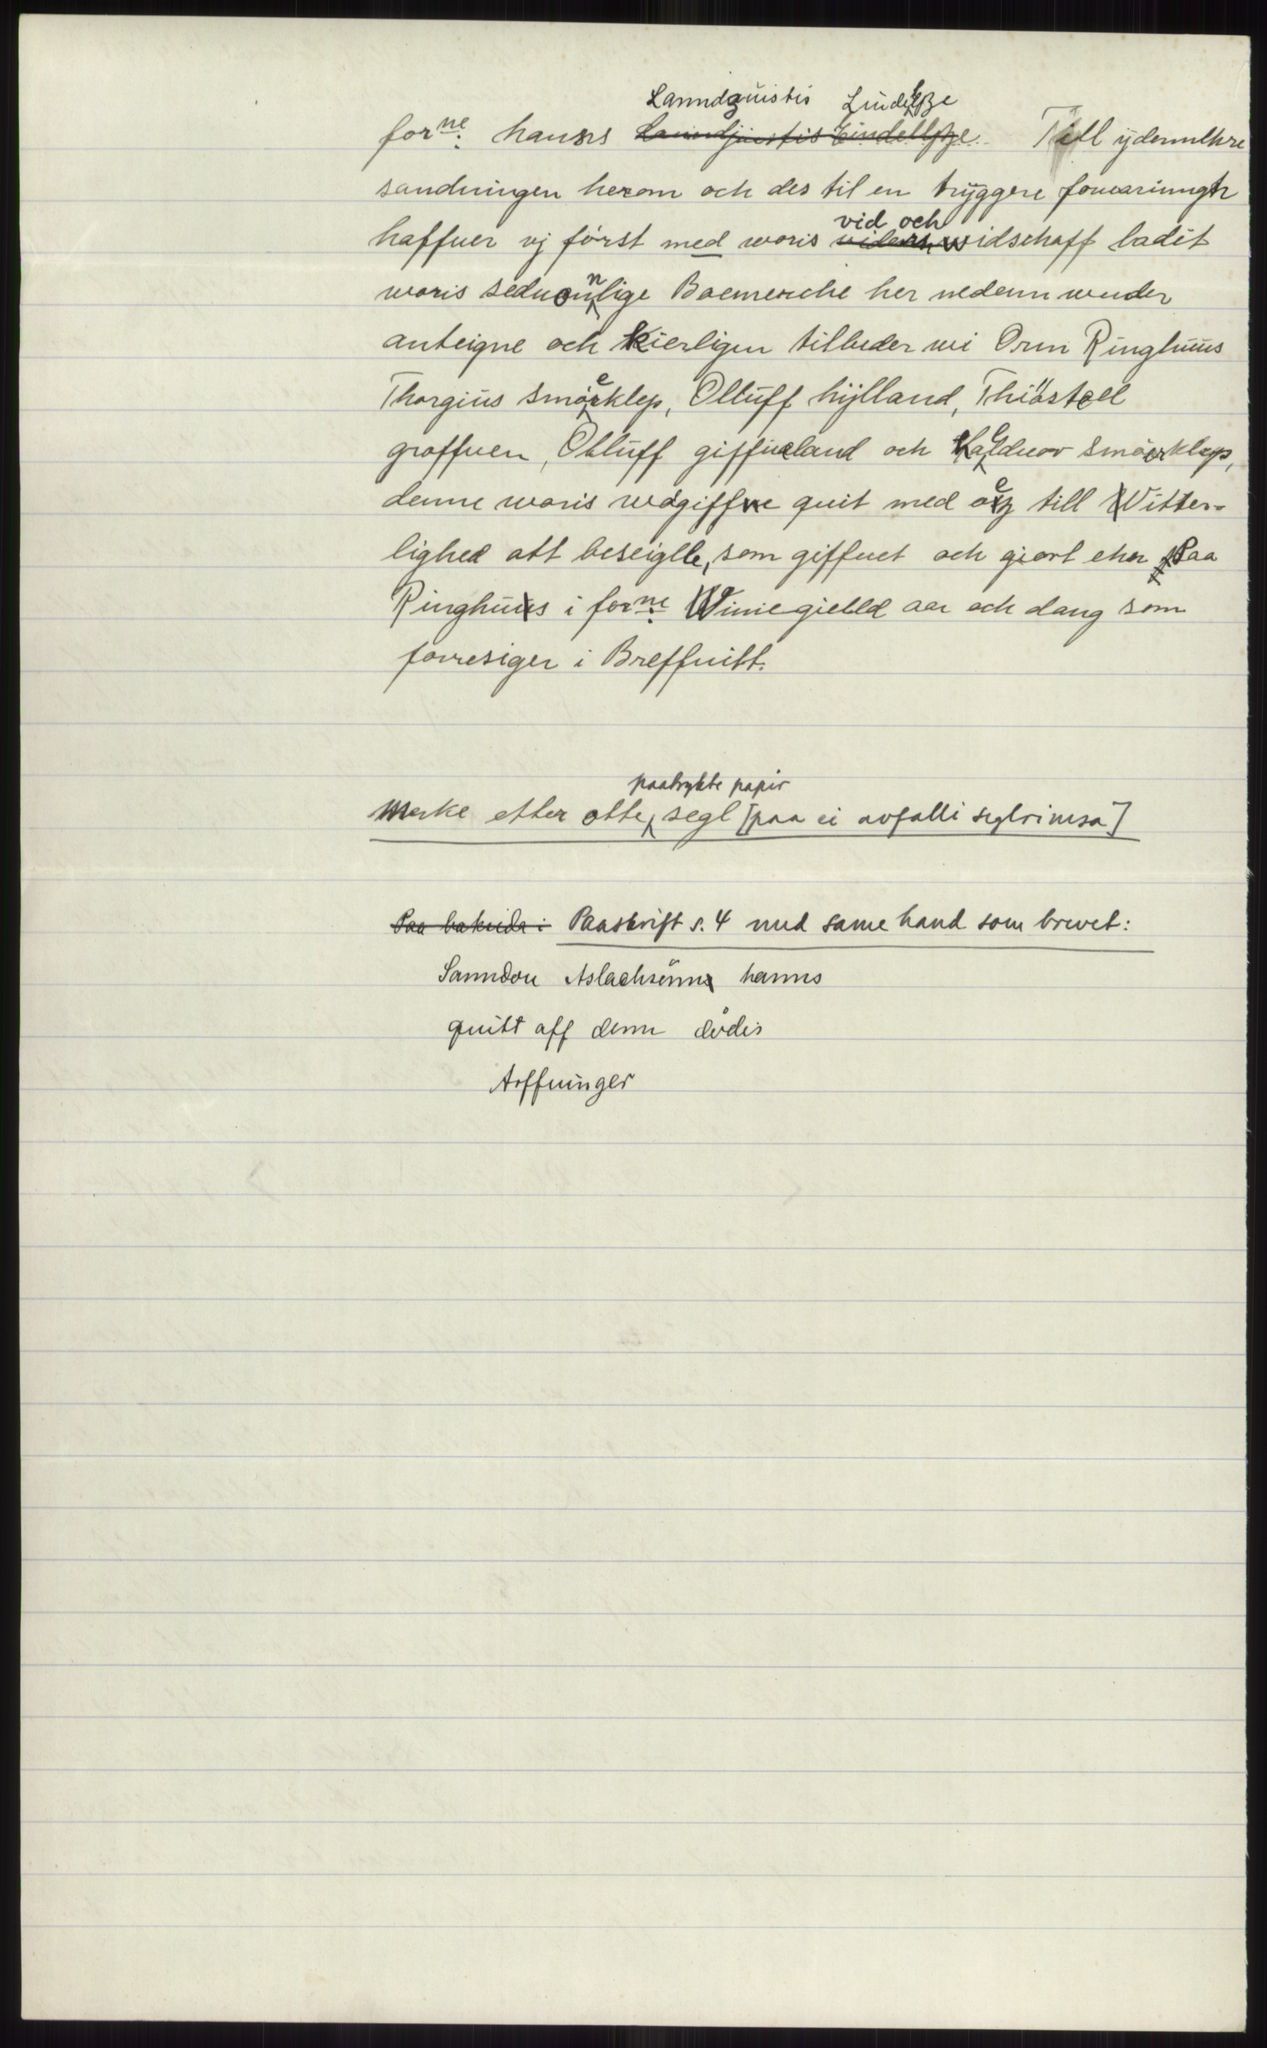 Lanndzuistis Lindelße
forne: hanns Lanndjuistis Eindellße. Till ydermehre
sandningen herom och des til en tryggere forwaringh
haffuer vj først med woris vid och widschaff ladit
woris seduonnlige Boemerche her nedenn wnder
anteigne och Kierligen tilbeder wi Orm Ringhuus
Thorgius Smøerklep, Olluff hÿlland, Thiöstell
groffuen, Olluff giffueland och Halduor Smøerklep,
denne woris wdgiffne quit med oez till Witter-
lighed att beseigle, som giffuet och giort ehr Paa
Ringhus i forne: Winiegielld aar och dang som
forresiger i Breffuitt.
paatrykte papir
Merke etter otte segl [paa ei avfalli seglrimsa]
Paa baksida: Paaskrift s. 4 med same hand som brevet:
Sanndou Aslachsönn hanns
quitt aff denn dödis
Arffuinger